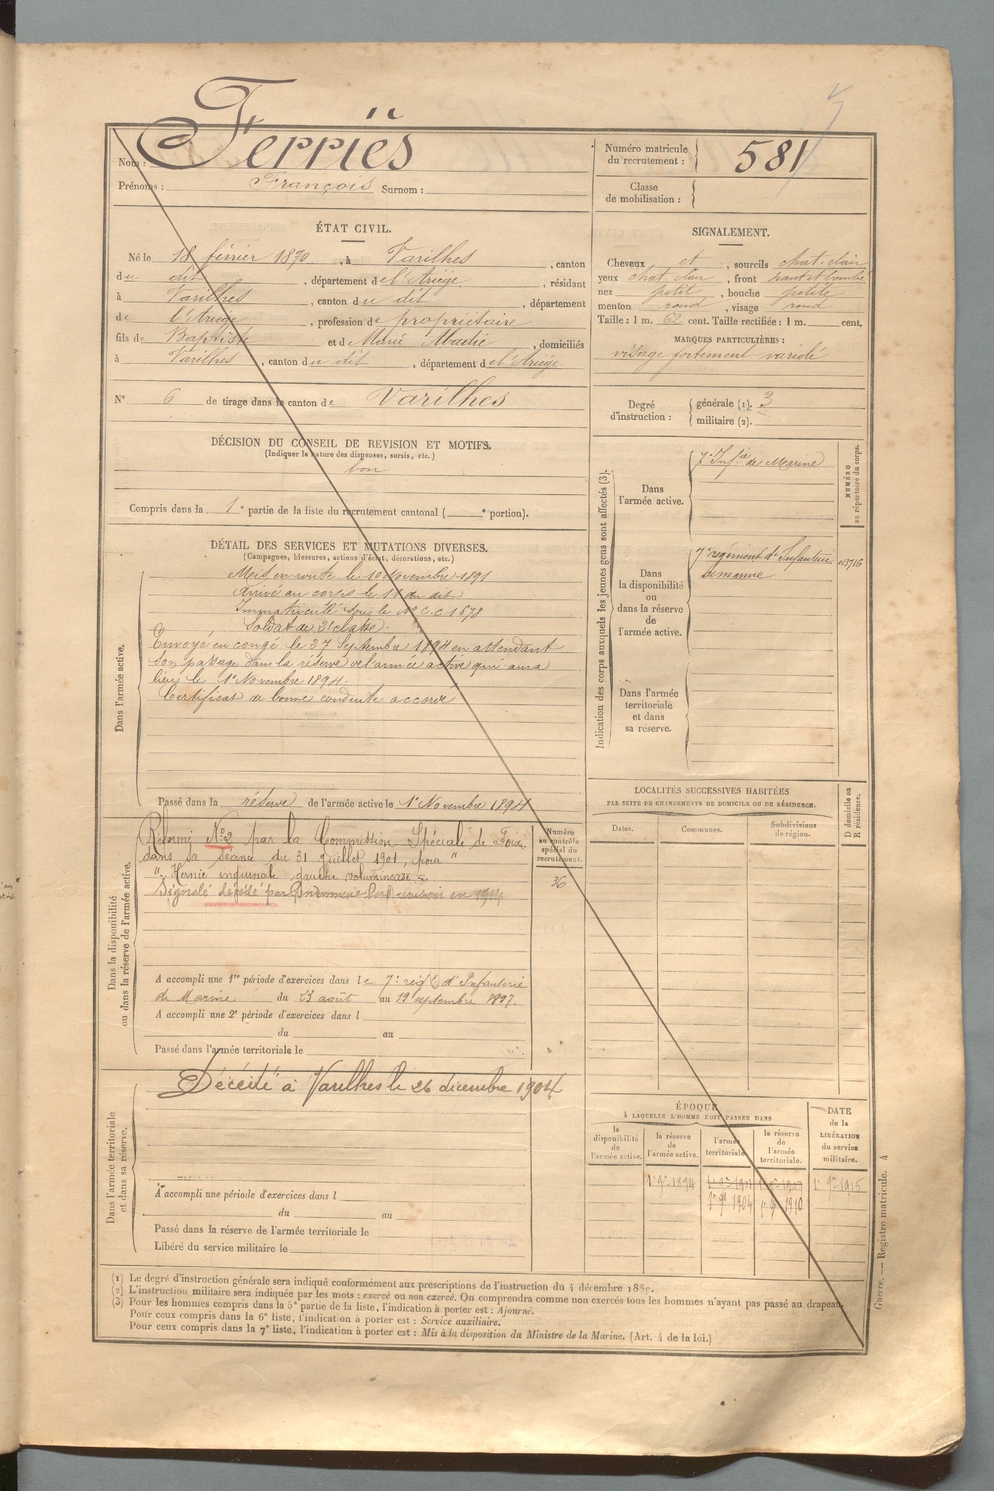 Nom : Ferriès
Prénoms : François Surnom :
Numéro matricule du recrutement : 581
Classe de mobilisation :
ÉTAT CIVIL.
Né le 18 février 1870, à Varilhes, canton
du dit, département de l'Ariège, résidant
à Varilhes, canton du dit, département
de l'Ariège, profession de propriétaire
fils de Baptiste et de Marie Abadie, domiciliés
à Varilhes, canton du dit, département de l'Ariège
N° 6 de tirage dans le canton de Varilhes
SIGNALEMENT.
Cheveux et, sourcils chat. clair
yeux chat. clair, front haut et bombé
nez petit, bouche petite
menton rond, visage rond
Taille : 1 m. 62 cent. Taille rectifiée : 1 m. cent.
MARQUES PARTICULIÈRES :
visage fortement variolé
Degré d'instruction : générale (1). 3
militaire (2).
DÉCISION DU CONSEIL DE REVISION ET MOTIFS.
(Indiquer la nature des dispenses, sursis, etc.)
bon
Compris dans la 1e partie de la liste du recrutement cantonal ( e portion).
DÉTAIL DES SERVICES ET MUTATIONS DIVERSES.
(Campagnes, blessures, actions d'éclat, décorations, etc.)
Dans l'armée active.
Mis en route le 10 Novembre 1891
Arrivé au corps le 11 du dit
Immatriculé sous le N° C.C. 1678
Soldat de 2e classe.
Envoyé en congé le 27 Septembre 1894 en attendant
son passage dans la réserve de l'armée active qui aura
lieu le 1er Novembre 1894.
Certificat de bonne conduite accordé
Passé dans la réserve de l'armée active le 1er Novembre 1894
Indication des corps auxquels les jeunes gens sont affectés (3).
Dans l'armée active.
7e Infrie de Marine
NUMÉRO au répertoire du corps.
Dans la disponibilité ou dans la réserve de l'armée active.
7e régiment d'Infanterie
de marine
13716
Dans l'armée territoriale et dans sa réserve.
Dans la disponibilité ou dans la réserve de l'armée active.
Réformé N°2 par la Commission Spéciale de Foix
dans sa séance du 31 Juillet 1901, pour "
" Hernie inguinale gauche volumineuse
Signalé décédé par Gendarmerie lors révision en 1914
Numéro au contrôle spécial du recrutement.
36
A accompli une 1re période d'exercices dans le 7e régt d'Infanterie
de Marine du 23 août au 19 septembre 1897.
A accompli une 2e période d'exercices dans l
du au
Passé dans l'armée territoriale le
LOCALITÉS SUCCESSIVES HABITÉES
PAR SUITE DE CHANGEMENTS DE DOMICILE OU DE RÉSIDENCE.
D domicile ou R résidence.
Dates. Communes. Subdivisions de région.
Dans l'armée territoriale et dans sa réserve.
Décédé à Varilhes le 26 décembre 1904
A accompli une période d'exercices dans l
du au
Passé dans la réserve de l'armée territoriale le
Libéré du service militaire le
ÉPOQUE
À LAQUELLE L'HOMME DOIT PASSER DANS
la disponibilité de l'armée active.
la réserve de l'armée active.
l'armée territoriale.
la réserve de l'armée territoriale.
DATE de la LIBÉRATION du service militaire.
1er 9bre 1894
1er 9bre 1904
1er 9bre 1910
1er 9bre 1916
(1) Le degré d'instruction générale sera indiqué conformément aux prescriptions de l'instruction du 4 décembre 1889.
(2) L'instruction militaire sera indiquée par les mots : exercé ou non exercé. On comprendra comme non exercés tous les hommes n'ayant pas passé au drapeau.
(3) Pour les hommes compris dans la 5e partie de la liste, l'indication à porter est : Ajourné.
Pour ceux compris dans la 6e liste, l'indication à porter est : Service auxiliaire.
Pour ceux compris dans la 7e liste, l'indication à porter est : Mis à la disposition du Ministre de la Marine. (Art. 4 de la loi.)
Guerre. — Registre matricule. 4